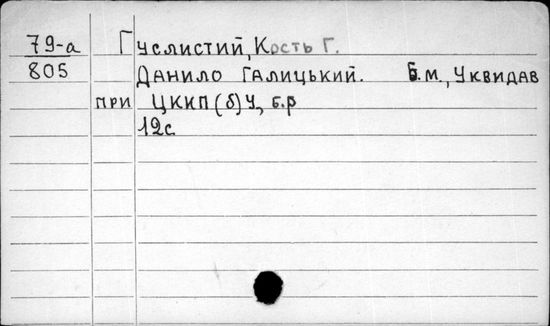 79-а Гуслистий, Кость Г.
805 Данило Галицький. Б.м., Уквидав
при ЦККП(б)У, б.р
12с.